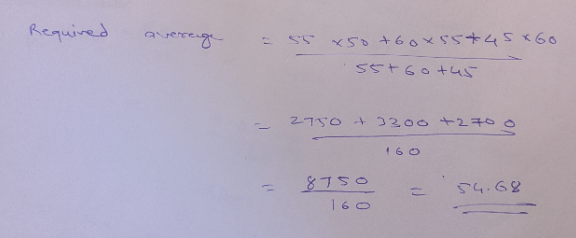 Required average = 55 x50 +60x55+45x60
55+60+45
= 2750 + 3300 +2700
160
= 8750 = 54.68
160